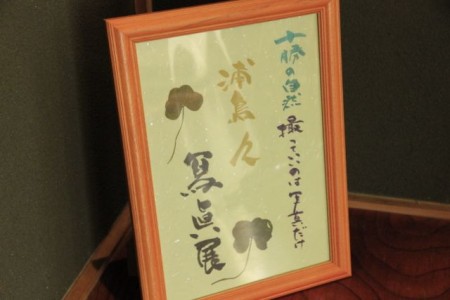 十勝の自然
撮っていいのは写真だけ
浦島久
写真展